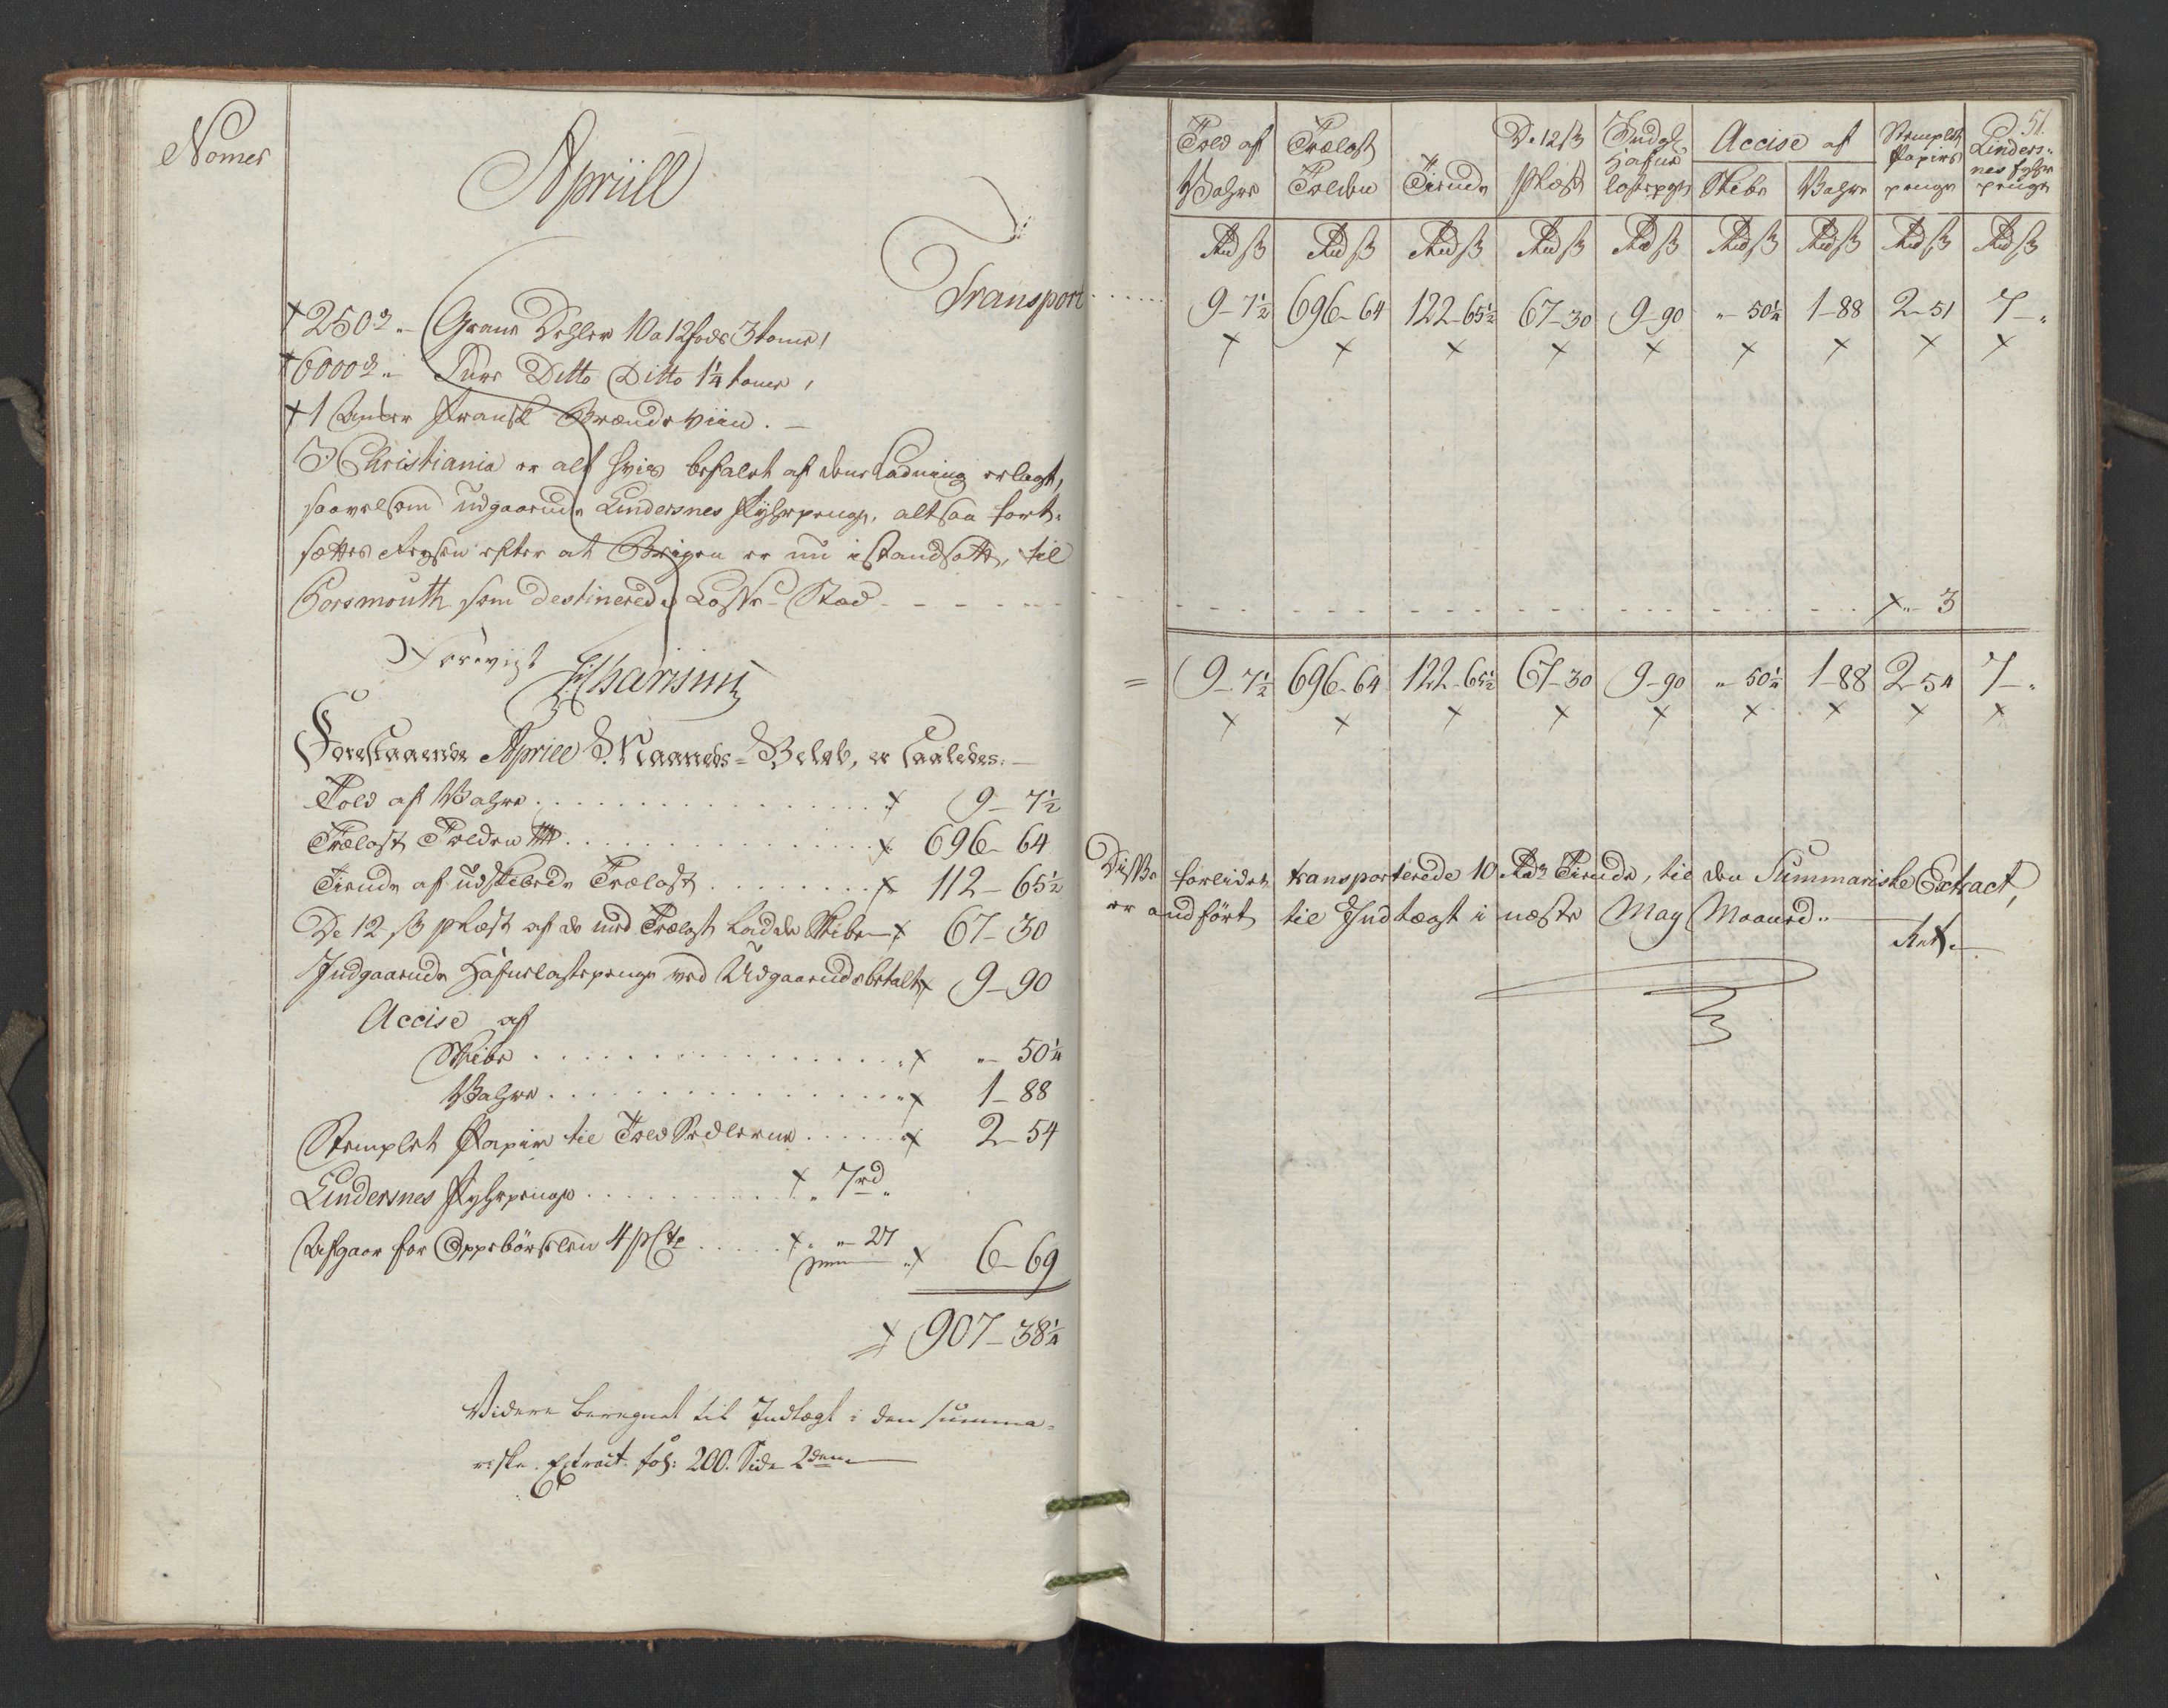 Nomer
Apriill
Transport
250 Grane Dehler 10 a 12 fods 3 tomr,
6000 Furr Ditto Ditto 1¼ tomr,
1 Ancker fransk Brændeviin.
I Christiania er alt hvis befalet af denne Ladning erlagt,
saavelsom udgaaende Lindersnes Fyhrpenge, altsaa fort-
sættes Reysen efter at Brigen er nu istandsatt, til
Porsmouth som destinerede Losse-Stæd
Forevigt
Forestaaende Apriel Maaneds-Beløb, er saaledes:
Told af Vahre 9 - 7½
Trælast Tolden 696 - 64
Tiende af udskibede Trælast 112 - 65½
De 12 ß pLæst af de med Trælast ladde Skibe 67 - 30
Indgaaende Hafnelastepenge ved Udgaaende betalt 9 - 90
Accise af
Skibe „ - 50¼
Vahre 1 - 88
Stemplet Papir til Told Sedlerne 2 - 54
Lindersnes Fyhrpenge 7rd „
Afgaar for Oppebørselen 4 pCto „ - 27
6 - 69
907 - 38¼
Videre beregnet til Indtægt i den summa-
riske Extract fol: 200. Side 2den
51.
Told af Vahre
Trælast Tolden
Tiende
De 12 ß pLæst
Indg: Hafne lastepge
Accise af
Skibe
Vahre
Stemplet Papirs penge
Linders-nes fyhr penge
Rd ß Rd ß Rd ß Rd ß Rd ß Rd ß Rd ß Rd ß Rd ß
9 - 7½ 696 - 64 122 - 65½ 67 - 30 9 - 90 „ - 50¼ 1 - 88 2 - 51 7 - „
„ - 3
= 9 - 7½ 696 - 64 122 - 65½ 67 - 30 9 - 90 „ - 50¼ 1 - 88 2 - 54 7 - „
Disse forlidet transporterede 10 Rdr Tiende, til den Summariske Extract,
er andført til Indtægt i næste May Maaned..